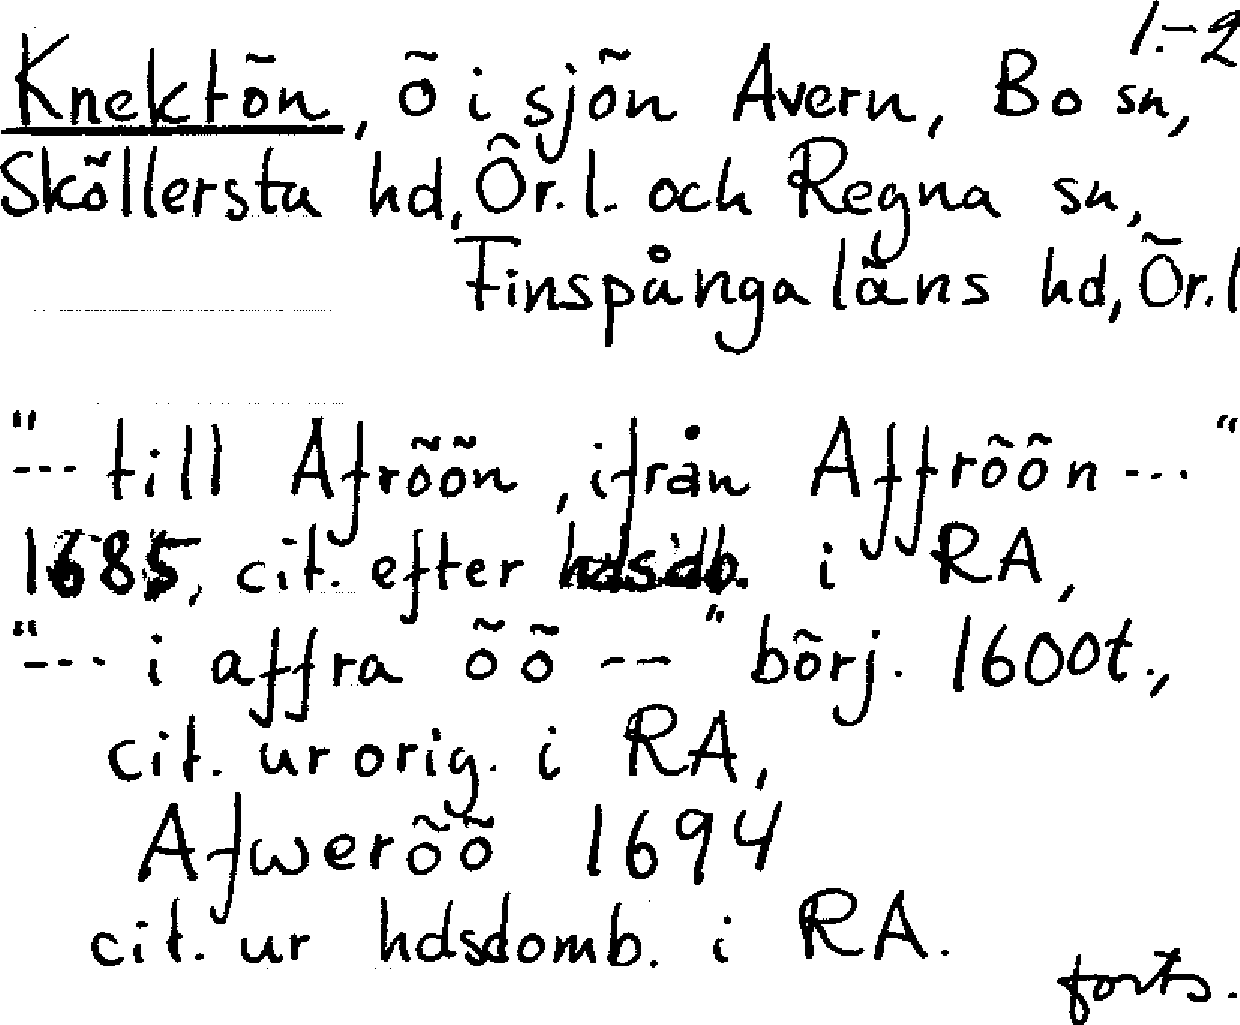 1.-2
Knektön, ö i sjön Avern, Bo sn,
Sköllersta hd, Ör.l. och Regna sn,
Finspånga läns hd, Ör.l
"--- till Afröön, ifrån Affröön---"
1685, cit. efter hdsdb. i RA,
"--- i affra öö --" börj. 1600t.,
cit. ur orig. i RA,
Afweröö 1694
cit. ur hdsdomb. i RA.
forts.